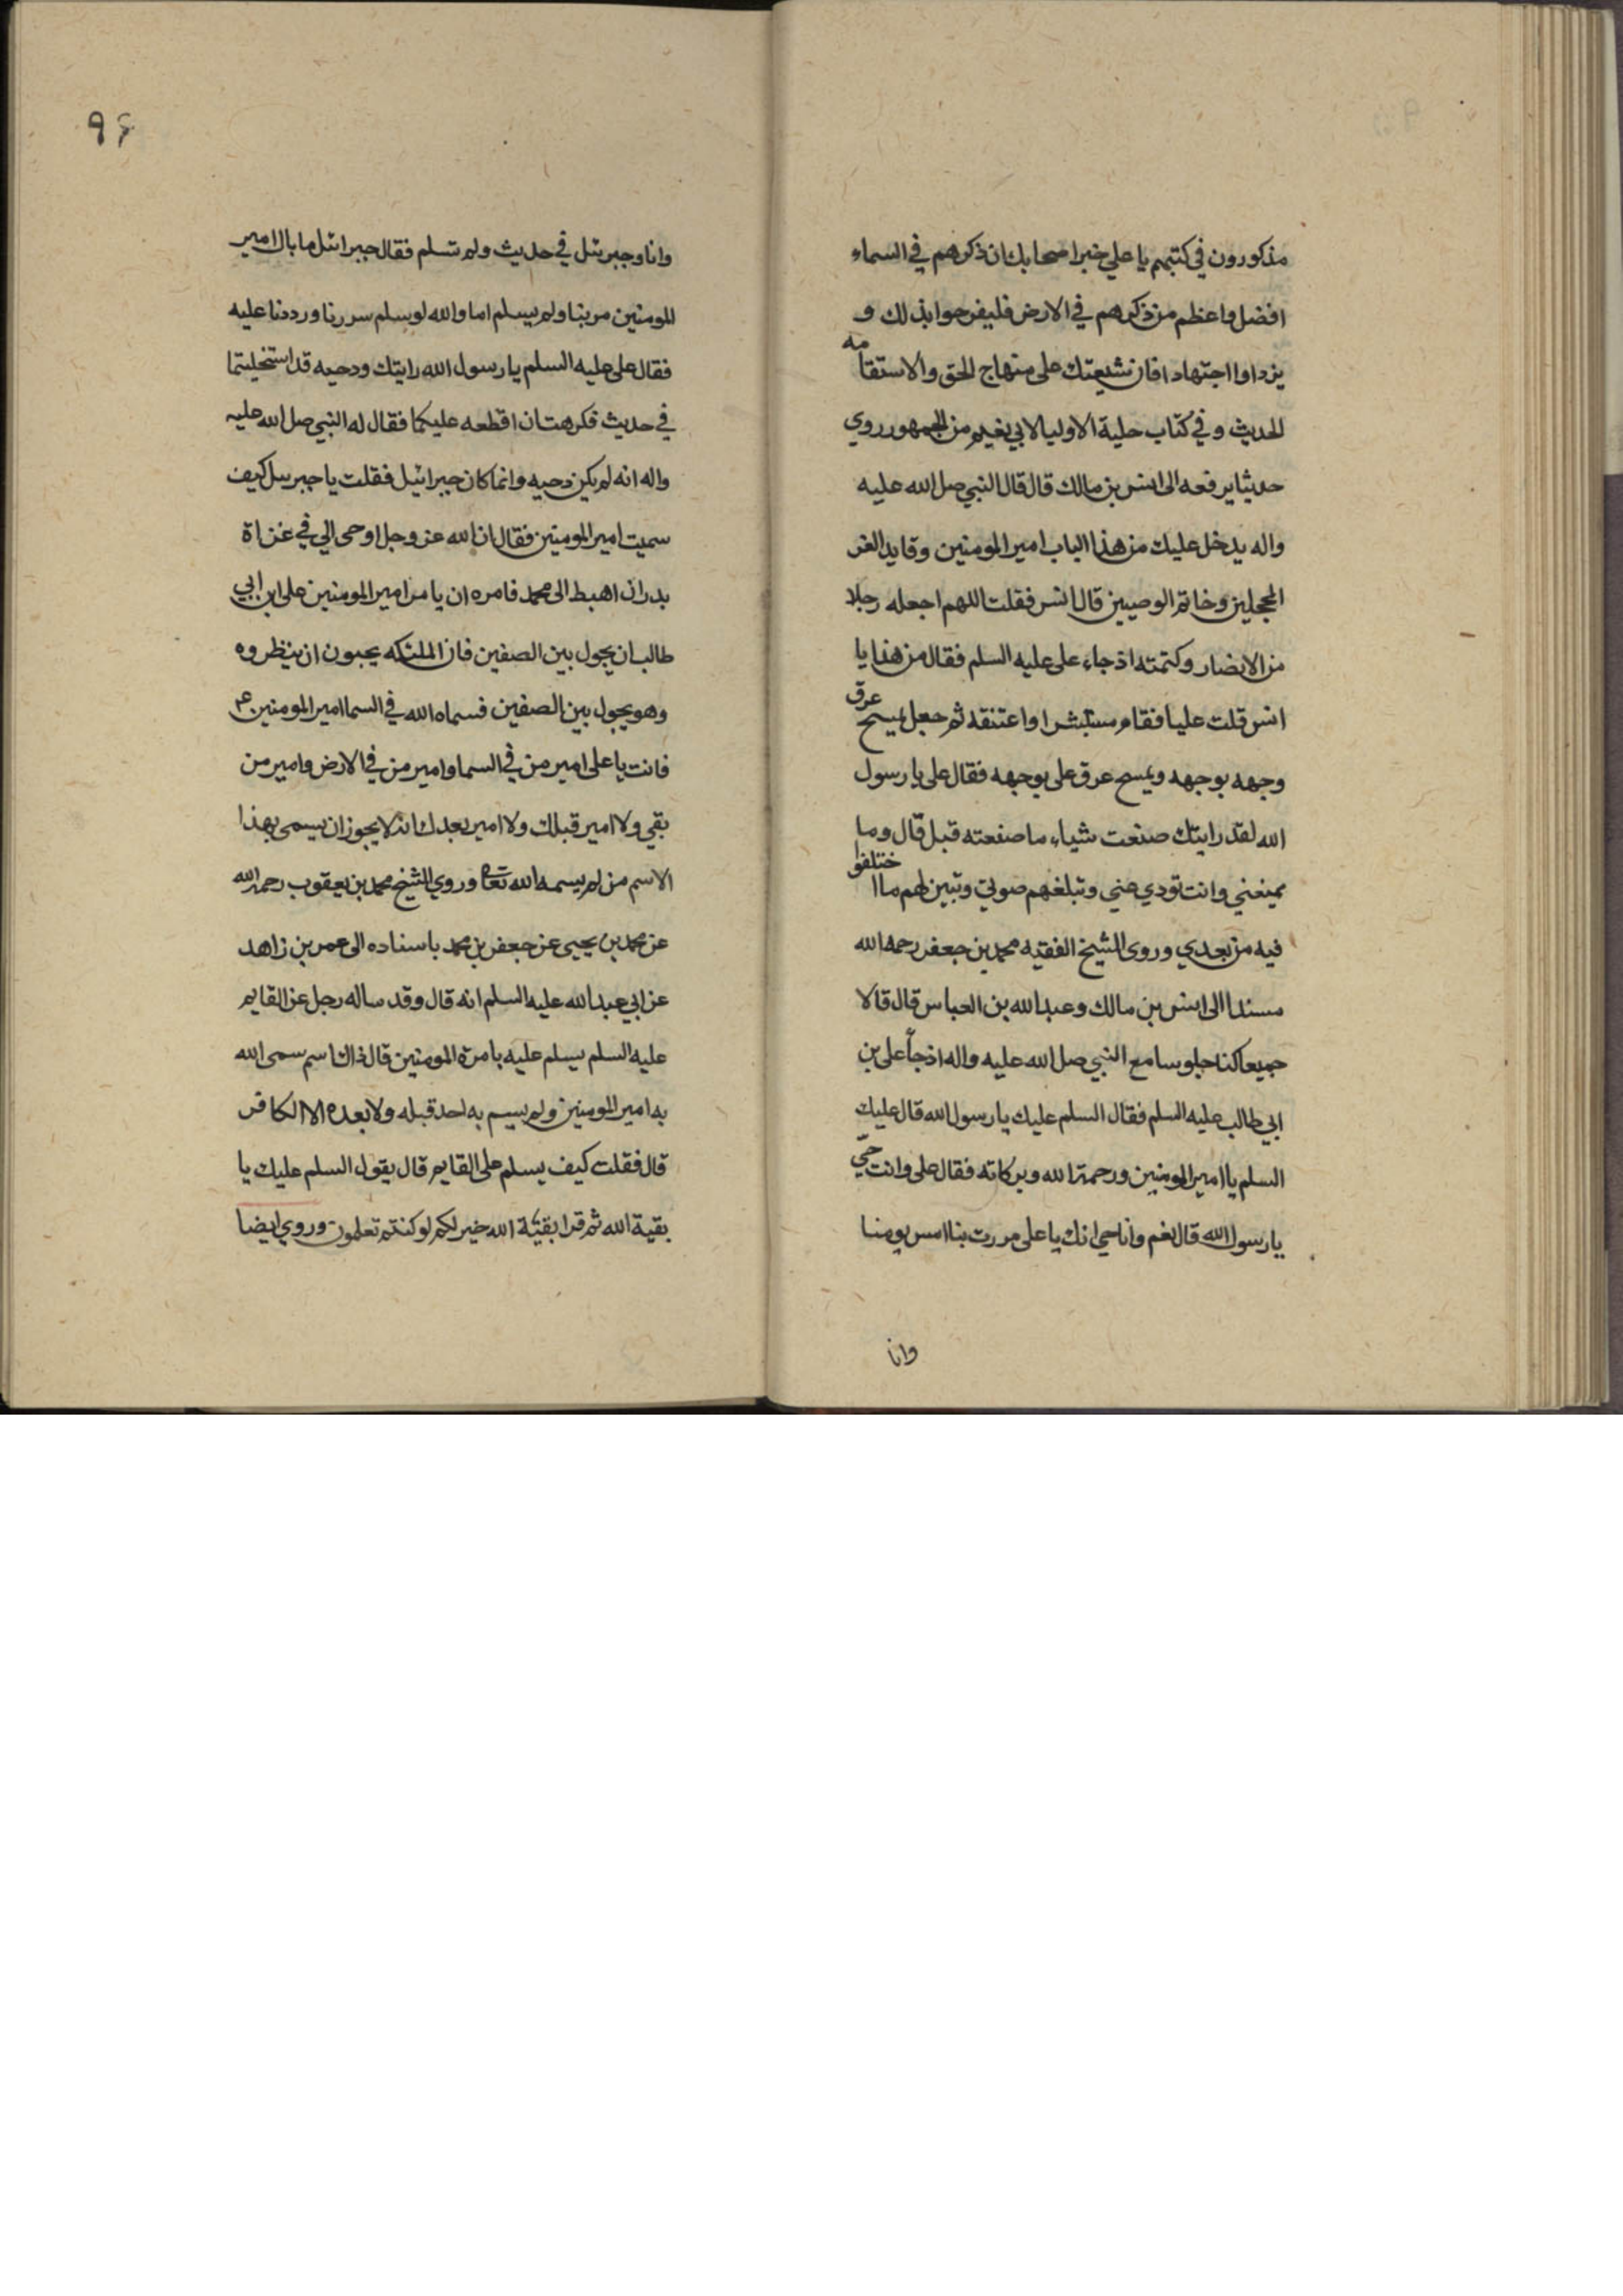 مذكورون في كتبهم يا علي خبر اصحابك ان ذكرهم في السماء
افضل واعظم من ذكرهم في الارض فليفرحوا بذلك و
يزدادوا اجتهادا فان شيعتك على منهاج الحق والاستقامه
الحديث وفي كتاب حلية الاوليا لابي نعيم من الجمهور روي
حديثا يرفعه الى انس بن مالك قال قال النبي صل الله عليه
واله يدخل عليك من هذا الباب امير المومنين وقايد الغر
المحجلين وخاتم الوصيين قال انس فقلت اللهم اجعله رجلا
من الانصار وكتمته اذ جاء على عليه السلم فقال من هذا يا
انس قلت عليا فقام مستبشرا واعتنقه ثم جعل يمسح عرق
وجهه بوجهه ويمسح عرق على بوجهه فقال على يا رسول
الله لقد رايتك صنعت شياء ما صنعته قبل قال وما
يمنعني وانت تودي عني وتبلغهم صوتي وتبين لهم ما اختلفوا
فيه من بعدي وروى الشيخ الفقيه محمد بن جعفر رحمه الله
مسندا الى انس بن مالك وعبد الله بن العباس قال قالا
جميعا كنا جلوسا مع النبي صل الله عليه واله اذ جأ على بن
ابي طالب عليه السلم فقال السلم عليك يا رسول الله قال عليك
السلم يا امير المومنين ورحمة الله وبركاته فقال على وانت حي
يا رسول الله قال نعم وانا حي انك يا على مررت بنا امس يومنا
وانا
٩۶
وانا وجبريئل في حديث ولم تسلم فقال جبرائل ما بال امير
المومنين مر بنا ولم يسلم اما والله لو سلم سررنا ورددنا عليه
فقال على عليه السلم يا رسول الله رايتك ودحيه قد استخليتما
في حديث فكرهت ان اقطعه عليكما فقال له النبي صل الله عليه
واله انه لم يكن دحيه وانما كان جبرائيل فقلت يا جبريل كيف
سميت امير المومنين فقال ان الله عز وجل اوحى الي في غزاة
بدر ان اهبط الى محمد فامره ان يامر امير المومنين على ابن ابي
طالب ان يجول بين الصفين فان الملئكه يحبون ان ينظروه
وهو يجول بين الصفين فسماه الله في السما امير المومنين ع م
فانت يا على امير من في السما وامير من في الارض وامير من
بقي ولا امير قبلك ولا امير بعدك انه لا يجوز ان يسمى بهذا
الاسم من لم يسمه الله تعا وروي الشيخ محمد بن يعقوب رحمه الله
عن محمد بن يحيى عن جعفر بن محمد باسناده الى عمر بن زاهد
عن ابي عبد الله عليه السلم انه قال وقد ساله رجل عن القايم
عليه السلم يسلم عليه بامرة المومنين قال ذاك اسم سمى الله
به امير المومنين ولم يسم به احد قبله ولا بعده الا الكافر
قال فقلت كيف يسلم على القايم قال يقول السلم عليك يا
بقية الله ثم قرا بقيّة الله خير لكم لو كنتم تعلمون وروي ايضا